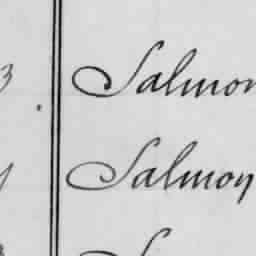 3 Salmon
Salmon